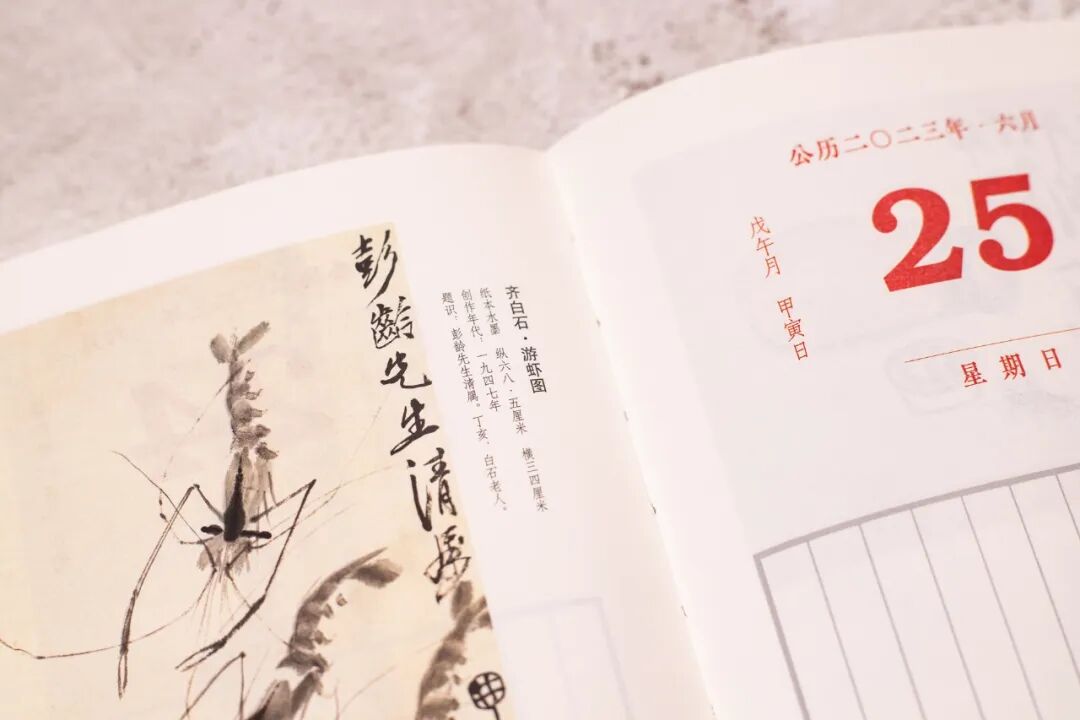 彭齡先生清屬
齐白石·游虾图
纸本水墨 纵六八·五厘米 横三四厘米
创作年代：一九四七年
题识：彭龄先生清属。丁亥，白石老人。
公历二〇二三年·六月
25
戊午月 甲寅日
星期日